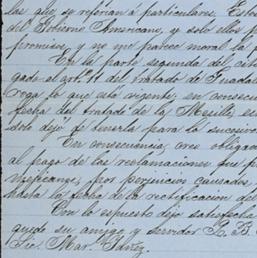 las que se refieran á particulares. Esto
del Gobierno Americano, y solo ellos p
promisos, y no me parece moral la f
En la parte segunda del cita
gado el artº 11 del tratado de Guadal
roga lo que está vigente, en consecu
fecha del tratado de la Mesilla, es
solo dejó de tenerla para lo sucesivo
En consecuencia, creo obligad
al pago de las reclamaciones que p
mejicanos, por perjuicios causados,
hasta la fecha de la rectificacion del
Con lo espuesto dejo satisfecha
quedo su amigo y servidor Q. B.
Lic. Mar. Yáñez.